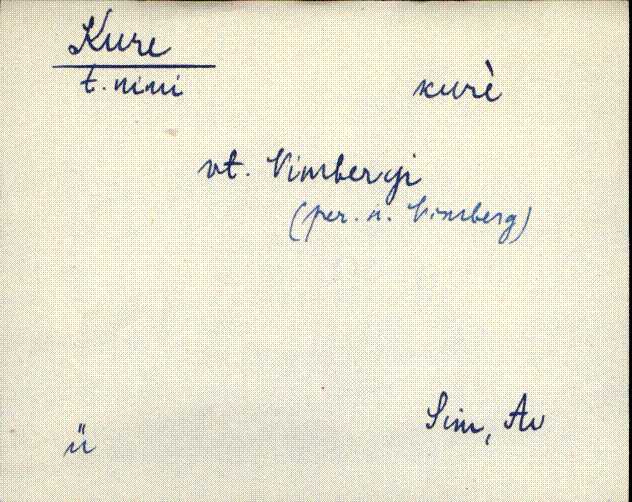 Kure
t. nimi kurè
vt. Vimbergi
(per. n. Vimberg)
Sim, Av
ü